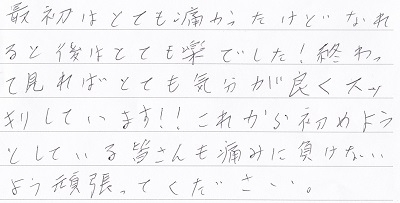 最初はとても痛かったけどなれ
ると後はとても楽でした!終わっ
て見ればとても気分が良くスッ
キリしています!!これから初めよう
としている皆さんも痛みに負けない
よう頑張ってください。